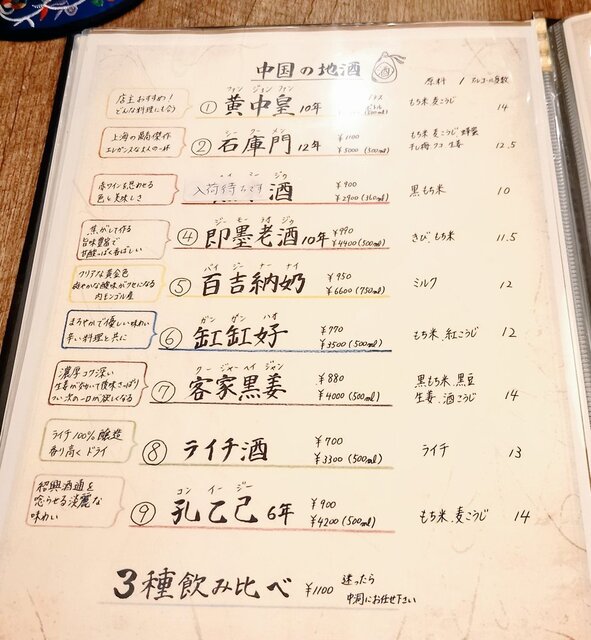 中国の地酒
酒
原料 / アルコール度数
店主おすすめ!
どんな料理にも合う
ファン ジョン ファン
① 黄中皇 10年
もち米 麦こうじ
14
上海の高傑作
エレガンスな大人の一杯
シー クー メン
② 石庫門 12年
¥1100
¥5000 (500ml)
もち米 麦こうじ 蜂蜜
干し梅 クコ 生姜
12.5
赤ワインを思わせる
色と美味しさ
入荷待ちです
酒
¥900
¥2900 (360ml)
黒もち米
10
焦がして作る
旨味豊富で
甘酸っぱく香ばしい
ジー モー ラオ ジウ
④ 即墨老酒 10年
¥990
¥4400 (500ml)
きび、もち米
11.5
クリアな黄金色
爽やかな酸味がクセになる
内モンゴル産
バイ ジー ナー ナイ
⑤ 百吉納奶
¥950
¥6600 (750ml)
ミルク
12
まろやかで優しい味わい
辛い料理と共に
ガン ガン ハオ
⑥ 缸缸好
¥770
¥3500 (500ml)
もち米、紅こうじ
12
濃厚コク深い
生姜が効いて後味さっぱり
つい次の一口が欲しくなる
クー ジャー ヘイ ジャン
⑦ 客家黒姜
¥880
¥4000 (500ml)
黒もち米 黒豆
生姜、酒こうじ
14
ライチ100%醸造
香り高く ドライ
⑧ ライチ酒
¥700
¥3300 (500ml)
ライチ
13
紹興酒通を
唸らせる淡麗な
味わい
コン イー ジー
⑨ 孔乙己 6年
¥900
¥4200 (500ml)
もち米、麦こうじ
14
3種飲み比べ ¥1100
迷ったら
中洞にお任せ下さい